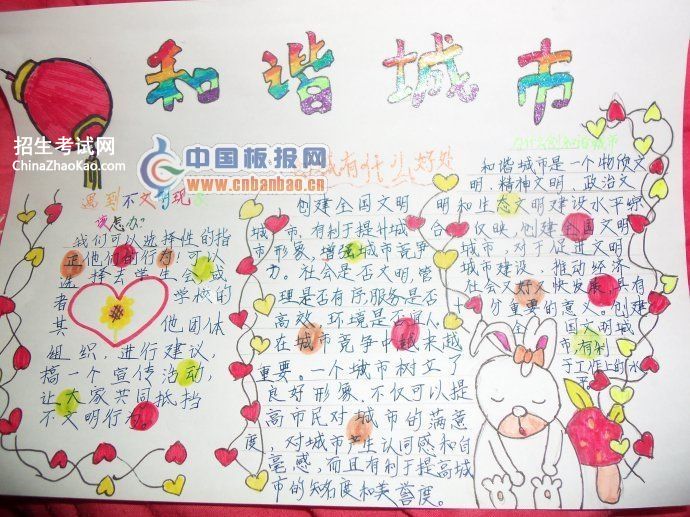 和谐城市
招生考试网
ChinaZhaoKao.com
中国板报网
www.cnbanbao.cn
遇到不文明现
该怎办?
我们可以选择性的指
正他们的行为!可以
选择去学生会或
者学校的
其他团体
组织,进行建议,
搞一个宣传活动,
让大家共同抵挡
不文明行为。
有什么好处
创建全国文明
城市,有利于提升城
市形象,增强城市竞争
力。社会是否文明,管
理是否有序,服务是否
高效,环境是否宜人
在城市竞争中越来越
重要。一个城市树立了
良好形象,不仅可以提
高市民对城市的满意
度,对城市产生认同感和自
豪感,而且有利于提高城
市的知名度和美誉度。
和谐城市是一个物质文
明,精神文明,政治文
明和生态文明建设水平综
合反映,创建全国文明
城市,对于促进文明
城市建设,推动经济
社会又好又快发展,具有
十分重要的意义。创建
全国文明城
市,有利
于工作上的水
平。